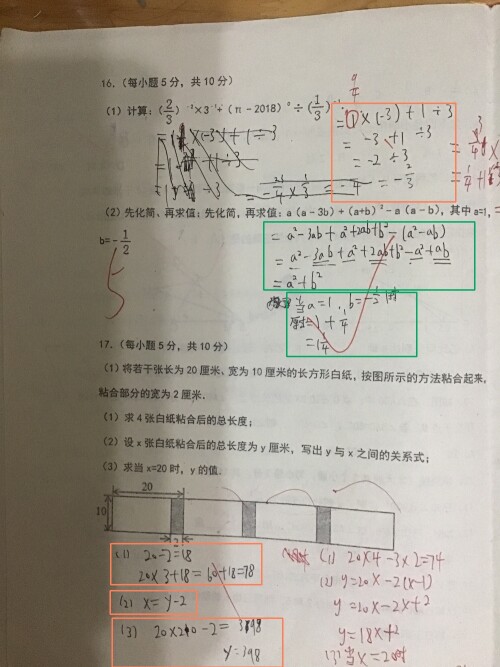 16.（每小题5分，共10分）
（1）计算：(2/3)⁻²×3⁻¹+（π-2018）⁰÷(1/3)⁻¹
9/4
=1×(-3)+1÷3
= -3+1÷3
= -2÷3
= -2/3
（2）先化简、再求值：先化简，再求值：a（a-3b）+（a+b）²-a（a-b），其中a=1，
b=-1/2
5
=a²-3ab+a²+2ab+b²-(a²-ab)
=a²-3ab+a²+2ab+b²-a²+ab
=a²+b²
当a=1，b=-1/2时
原式=1+1/4
=1 1/4
17.（每小题5分，共10分）
（1）将若干张长为20厘米、宽为10厘米的长方形白纸，按图所示的方法粘合起来，
粘合部分的宽为2厘米．
（1）求4张白纸粘合后的总长度；
（2）设x张白纸粘合后的总长度为y厘米，写出y与x之间的关系式；
（3）求当x=20时，y的值．
20
10
2
(1) 20-2=18
20×3+18=60+18=78
(2) x=y-2
(3) 20×20-2=398
y=398
(1) 20×4-3×2=74
(2) y=20x-2(x-1)
y=20x-2x+2
y=18x+2
(3)当x=20时